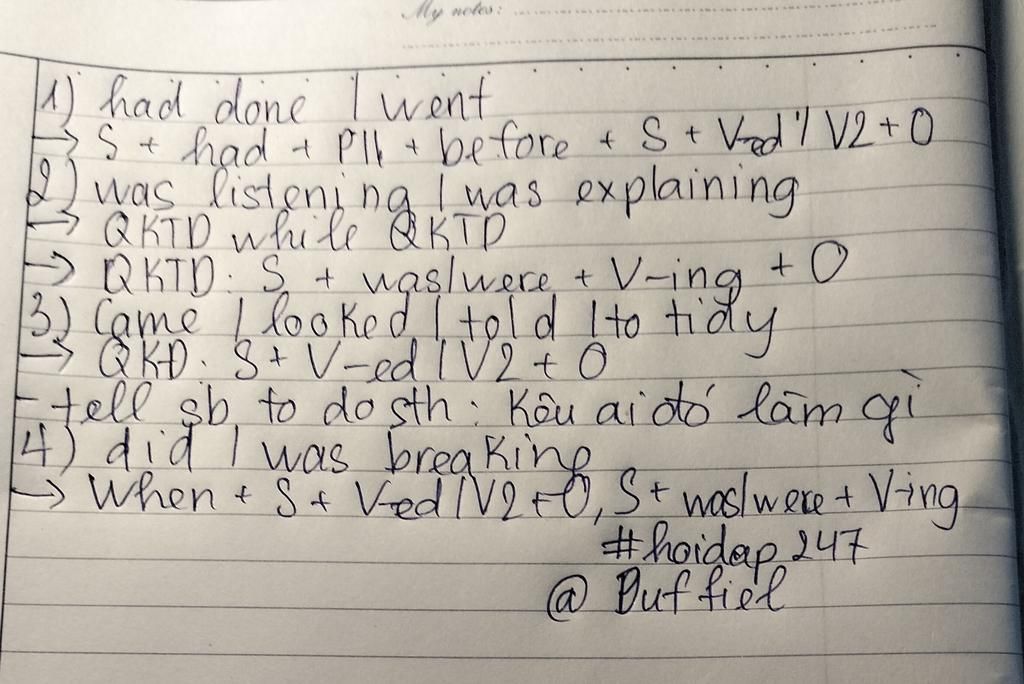 My notes:
1) had done / went
→ S + had + PII + before + S + V-ed / V2 + O
2) was listening / was explaining
→ QKTD while QKTD
→ QKTD: S + was/were + V-ing + O
3) Came / looked / told / to tidy
→ QKĐ: S + V-ed / V2 + O
- tell sb to do sth: Kêu ai đó làm gì
4) did / was breaking
→ When + S + V-ed / V2 + O, S + was/were + V-ing
#hoidap247
@ Duffiel